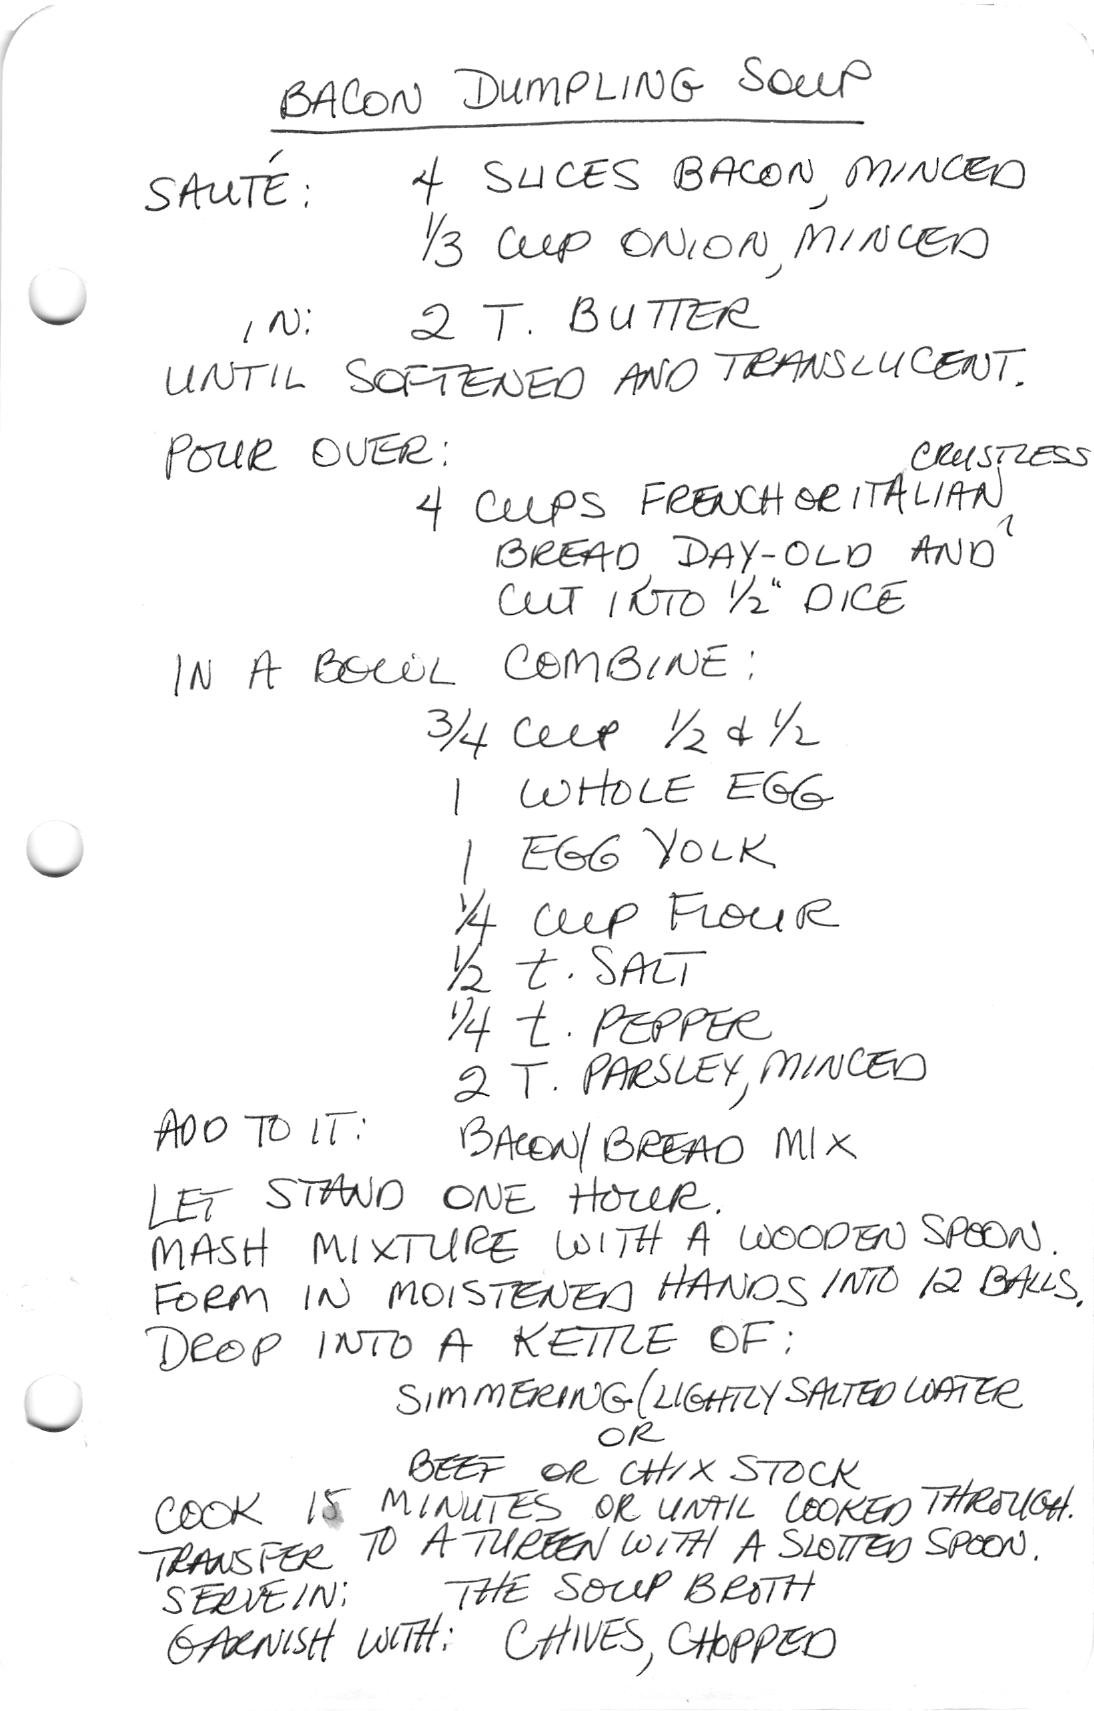 BACON DUMPLING SOUP
SAUTÉ: 4 SLICES BACON, MINCED
1/3 CUP ONION, MINCED
IN: 2 T. BUTTER
UNTIL SOFTENED AND TRANSLUCENT.
POUR OVER:
CRUSTLESS
4 CUPS FRENCH OR ITALIAN
BREAD, DAY-OLD AND
CUT INTO 1/2" DICE
IN A BOWL COMBINE:
3/4 CUP 1/2 & 1/2
1 WHOLE EGG
1 EGG YOLK
1/4 CUP FLOUR
1/2 t. SALT
1/4 t. PEPPER
2 T. PARSLEY, MINCED
ADD TO IT: BACON/BREAD MIX
LET STAND ONE HOUR.
MASH MIXTURE WITH A WOODEN SPOON.
FORM IN MOISTENED HANDS INTO 12 BALLS.
DROP INTO A KETTLE OF:
SIMMERING/LIGHTLY SALTED WATER
OR
BEEF OR CHIX STOCK
COOK 15 MINUTES OR UNTIL COOKED THROUGH.
TRANSFER TO A TUREEN WITH A SLOTTED SPOON.
SERVE IN: THE SOUP BROTH
GARNISH WITH: CHIVES, CHOPPED